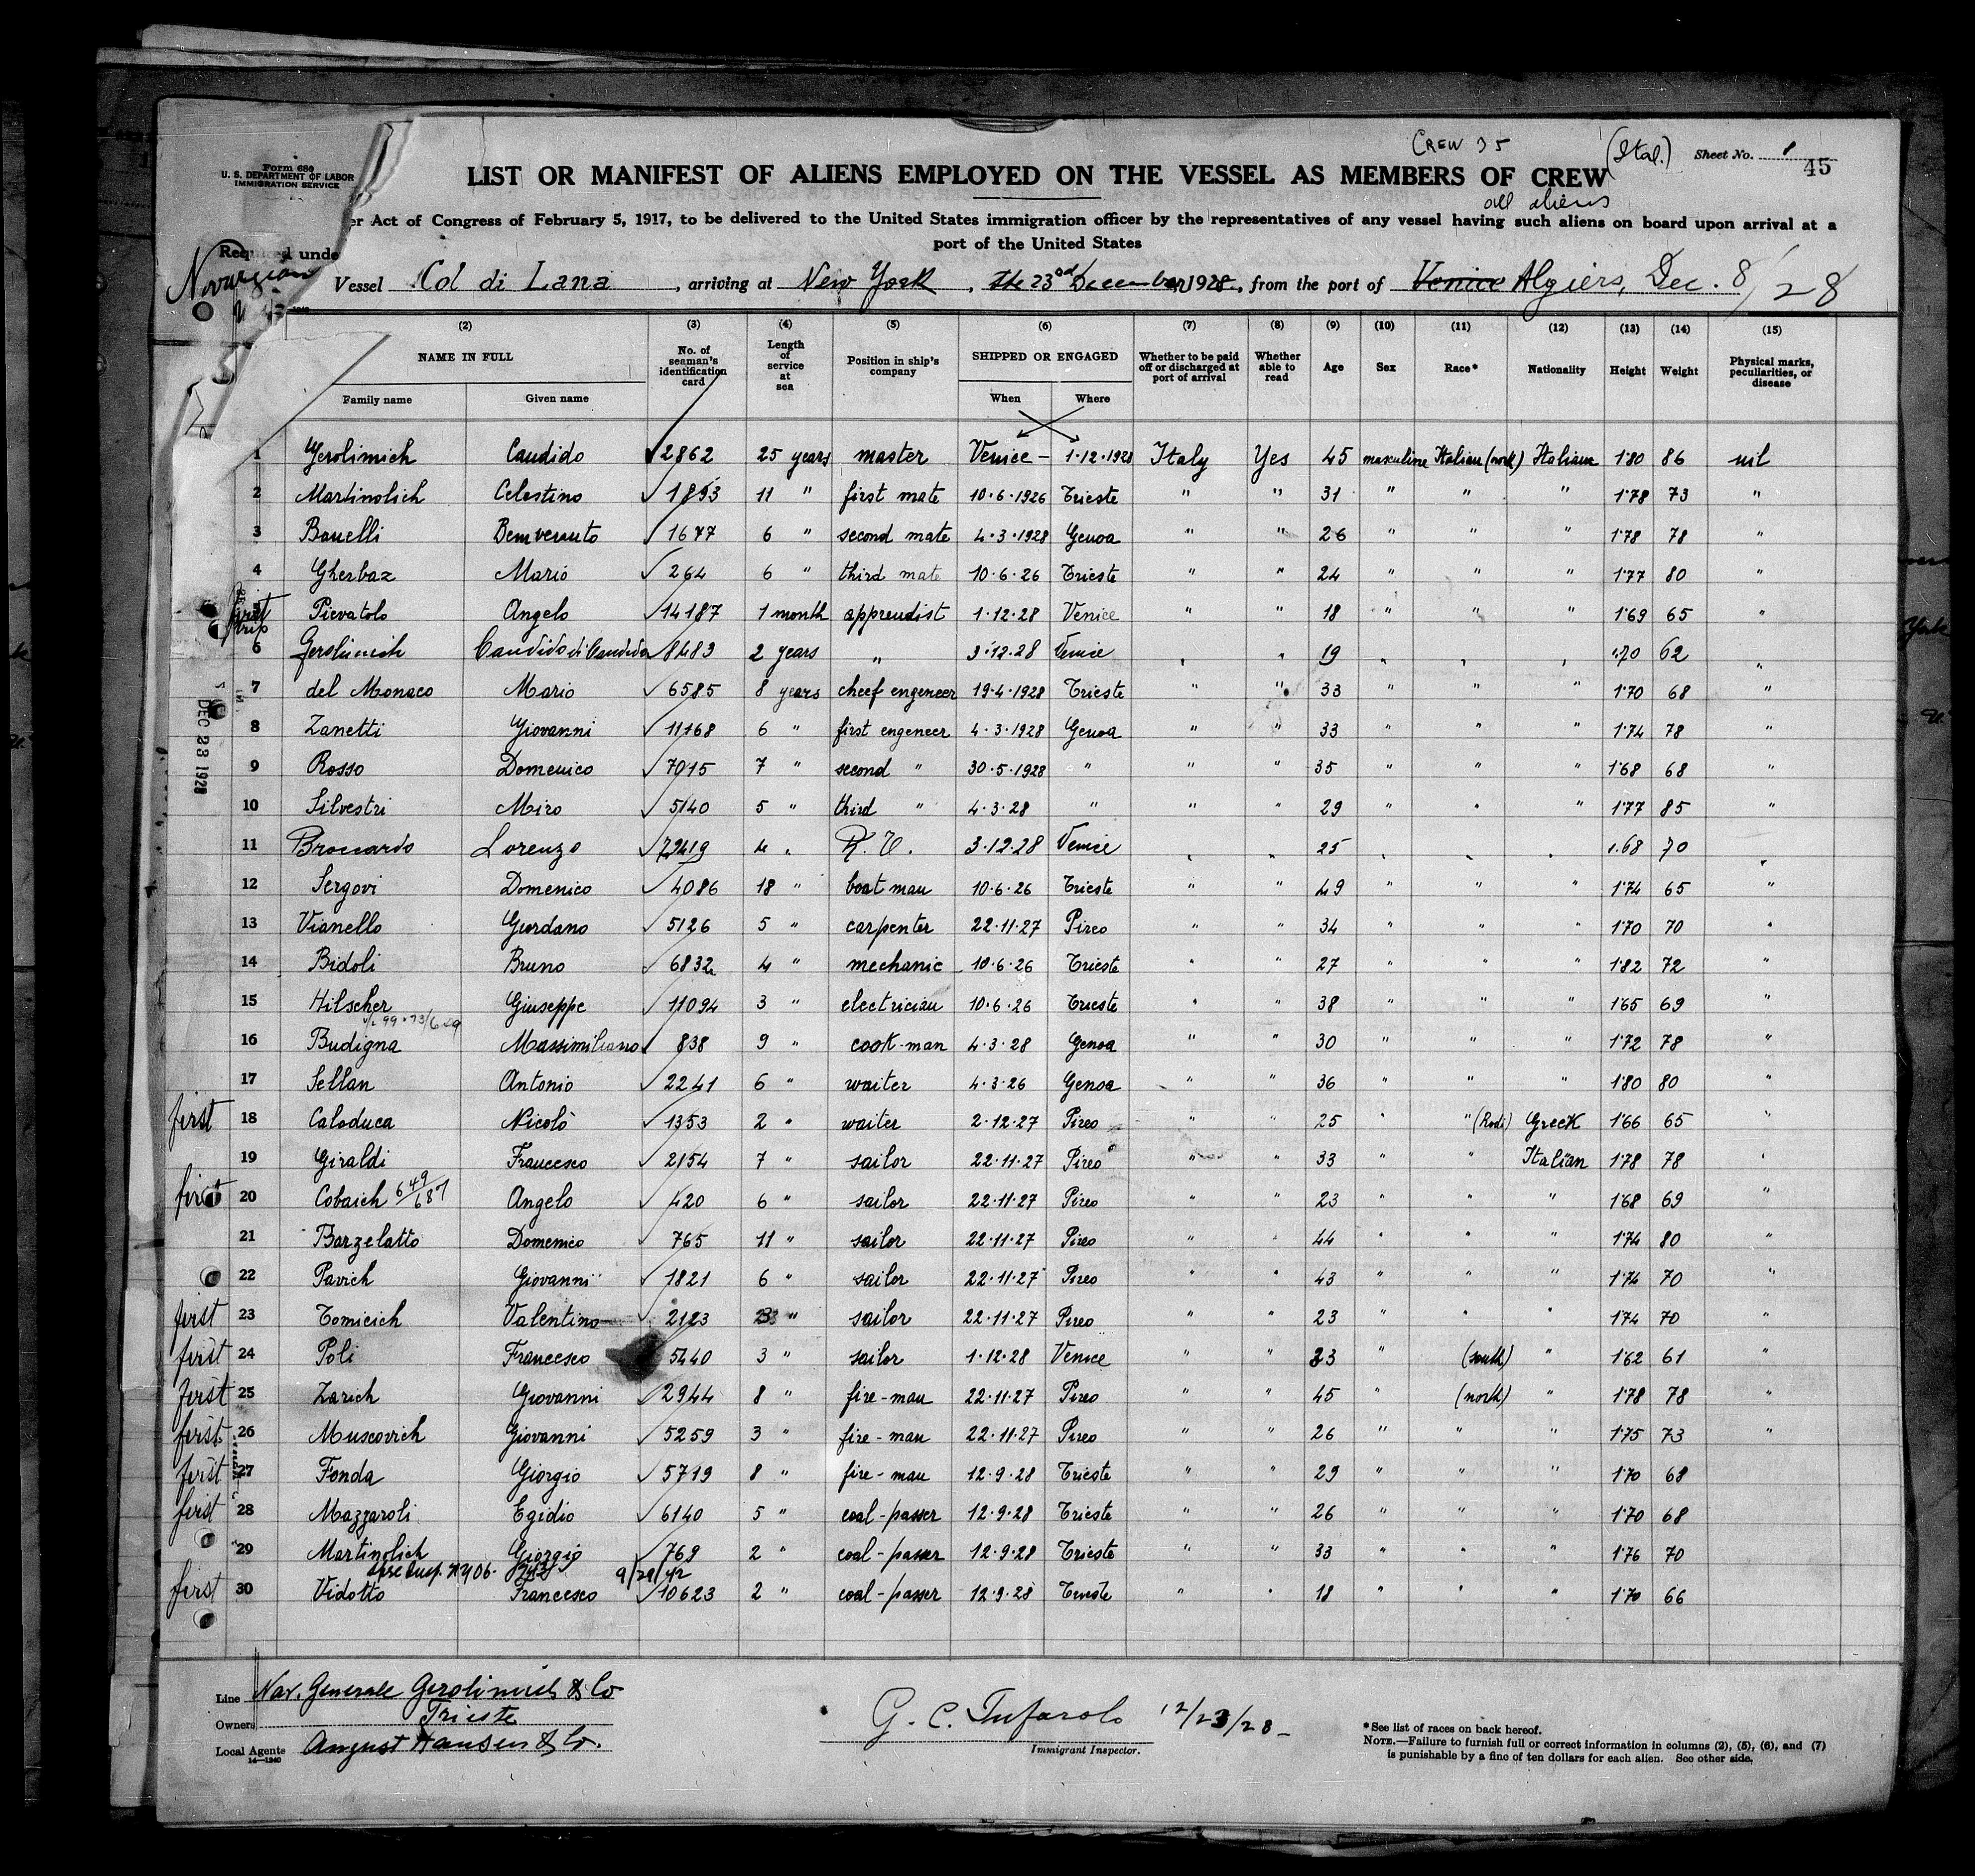 CREW 35
(Ital.)
Sheet No. 1
45
Form 680
U. S. DEPARTMENT OF LABOR
IMMIGRATION SERVICE
LIST OR MANIFEST OF ALIENS EMPLOYED ON THE VESSEL AS MEMBERS OF CREW
all aliens
er Act of Congress of February 5, 1917, to be delivered to the United States immigration officer by the representatives of any vessel having such aliens on board upon arrival at a
port of the United States
Required unde
Vessel Col di Lana, arriving at New York, the 23rd December 1928, from the port of Venice Algiers, Dec. 8/28
(2) (3) (4) (5) (6) (7) (8) (9) (10) (11) (12) (13) (14) (15)
NAME IN FULL No. of seaman's identification card Length of service at sea Position in ship's company SHIPPED OR ENGAGED Whether to be paid off or discharged at port of arrival Whether able to read Age Sex Race* Nationality Height Weight Physical marks, peculiarities, or disease
Family name Given name When Where
1 Gerolimich Candido 2862 25 years master Venice - 1.12.1928 Italy Yes 45 masculine Italian (north) Italian 1.80 86 nil
2 Martinolich Celestino 1893 11 " first mate 10.6.1926 Trieste " " 31 " " " 1.78 73 "
3 Bonelli Benvenuto 1677 6 " second mate 4.3.1928 Genoa " " 26 " " " 1.78 78 "
4 Gherbaz Mario 264 6 " third mate 10.6.26 Trieste " " 24 " " " 1.77 80 "
first trip
5 Pievatolo Angelo 14187 1 month apprendist 1.12.28 Venice " " 18 " " " 1.69 65 "
6 Gerolimich Candido di Candido 8483 2 years " 3.12.28 Venice " " 19 " " " 1.70 62 "
7 del Monaco Mario 6585 8 years cheef engeneer 19.4.1928 Trieste " " 33 " " " 1.70 68 "
DEC 23 1928
8 Zanetti Giovanni 11168 6 " first engeneer 4.3.1928 Genoa " " 33 " " " 1.74 78 "
9 Rosso Domenico 7015 7 " second " 30.5.1928 " " " 35 " " " 1.68 68 "
10 Silvestri Miro 5140 5 " third " 4.3.28 " " " 29 " " " 1.77 85 "
11 Broccardo Lorenzo 4 " 3.12.28 Venice " " 25 " " " 1.68 70 "
12 Sergovi Domenico 4086 18 " boat man 10.6.26 Trieste " " 49 " " " 1.74 65 "
13 Vianello Giordano 5126 5 " carpenter 22.11.27 Pireo " " 34 " " " 1.70 70 "
14 Bidoli Bruno 6832 4 " mechanic 10.6.26 Trieste " " 27 " " " 1.82 72 "
15 Hilscher Giuseppe 11094 3 " electrician 10.6.26 Trieste " " 38 " " " 1.65 69 "
16 Budigna Massimiliano 838 9 " cook-man 4.3.28 Genoa " " 30 " " " 1.72 78 "
17 Sellan Antonio 2241 6 " waiter 4.3.26 Genoa " " 36 " " " 1.80 80 "
first 18 Caloduca Nicolò 1353 2 " waiter 2.12.27 Pireo " " 25 " " (Rodi) Greek 1.66 65 "
19 Giraldi Francesco 2154 7 " sailor 22.11.27 Pireo " " 33 " " Italian 1.78 78 "
first 20 Cobaich 649/687 Angelo 420 6 " sailor 22.11.27 Pireo " " 23 " " " 1.68 69 "
21 Barzelatto Domenico 765 11 " sailor 22.11.27 Pireo " " 44 " " " 1.74 80 "
22 Pavich Giovanni 1821 6 " sailor 22.11.27 Pireo " " 43 " " " 1.74 70 "
first 23 Tomicich Valentino 2123 3 " sailor 22.11.27 Pireo " " 23 " " " 1.74 70 "
first 24 Poli Francesco 5440 3 " sailor 1.12.28 Venice " " 23 " (south) " 1.62 61 "
first 25 Zarich Giovanni 2944 8 " fire-man 22.11.27 Pireo " " 45 " (north) " 1.78 78 "
first 26 Muscovich Giovanni 5259 3 " fire-man 22.11.27 Pireo " " 26 " " " 1.75 73 "
first 27 Fonda Giorgio 5719 8 " fire-man 12.9.28 Trieste " " 29 " " " 1.70 68
first 28 Mazzaroli Egidio 6140 5 " coal-passer 12.9.28 Trieste " " 26 " " " 1.70 68
29 Martinolich Giorgio 769 2 " coal-passer 12.9.28 Trieste " " 33 " " " 1.76 70
9/29/42
first 30 Vidotto Francesco 10623 2 " coal-passer 12.9.28 Trieste " " 18 " " " 1.70 66
Line Nav. Generale Gerolimich & Co
Owners Trieste
Local Agents August Hansen & Co.
14—1240
G. C. Tufarolo 12/23/28
Immigrant Inspector.
*See list of races on back hereof.
NOTE.—Failure to furnish full or correct information in columns (2), (5), (6), and (7)
is punishable by a fine of ten dollars for each alien. See other side.